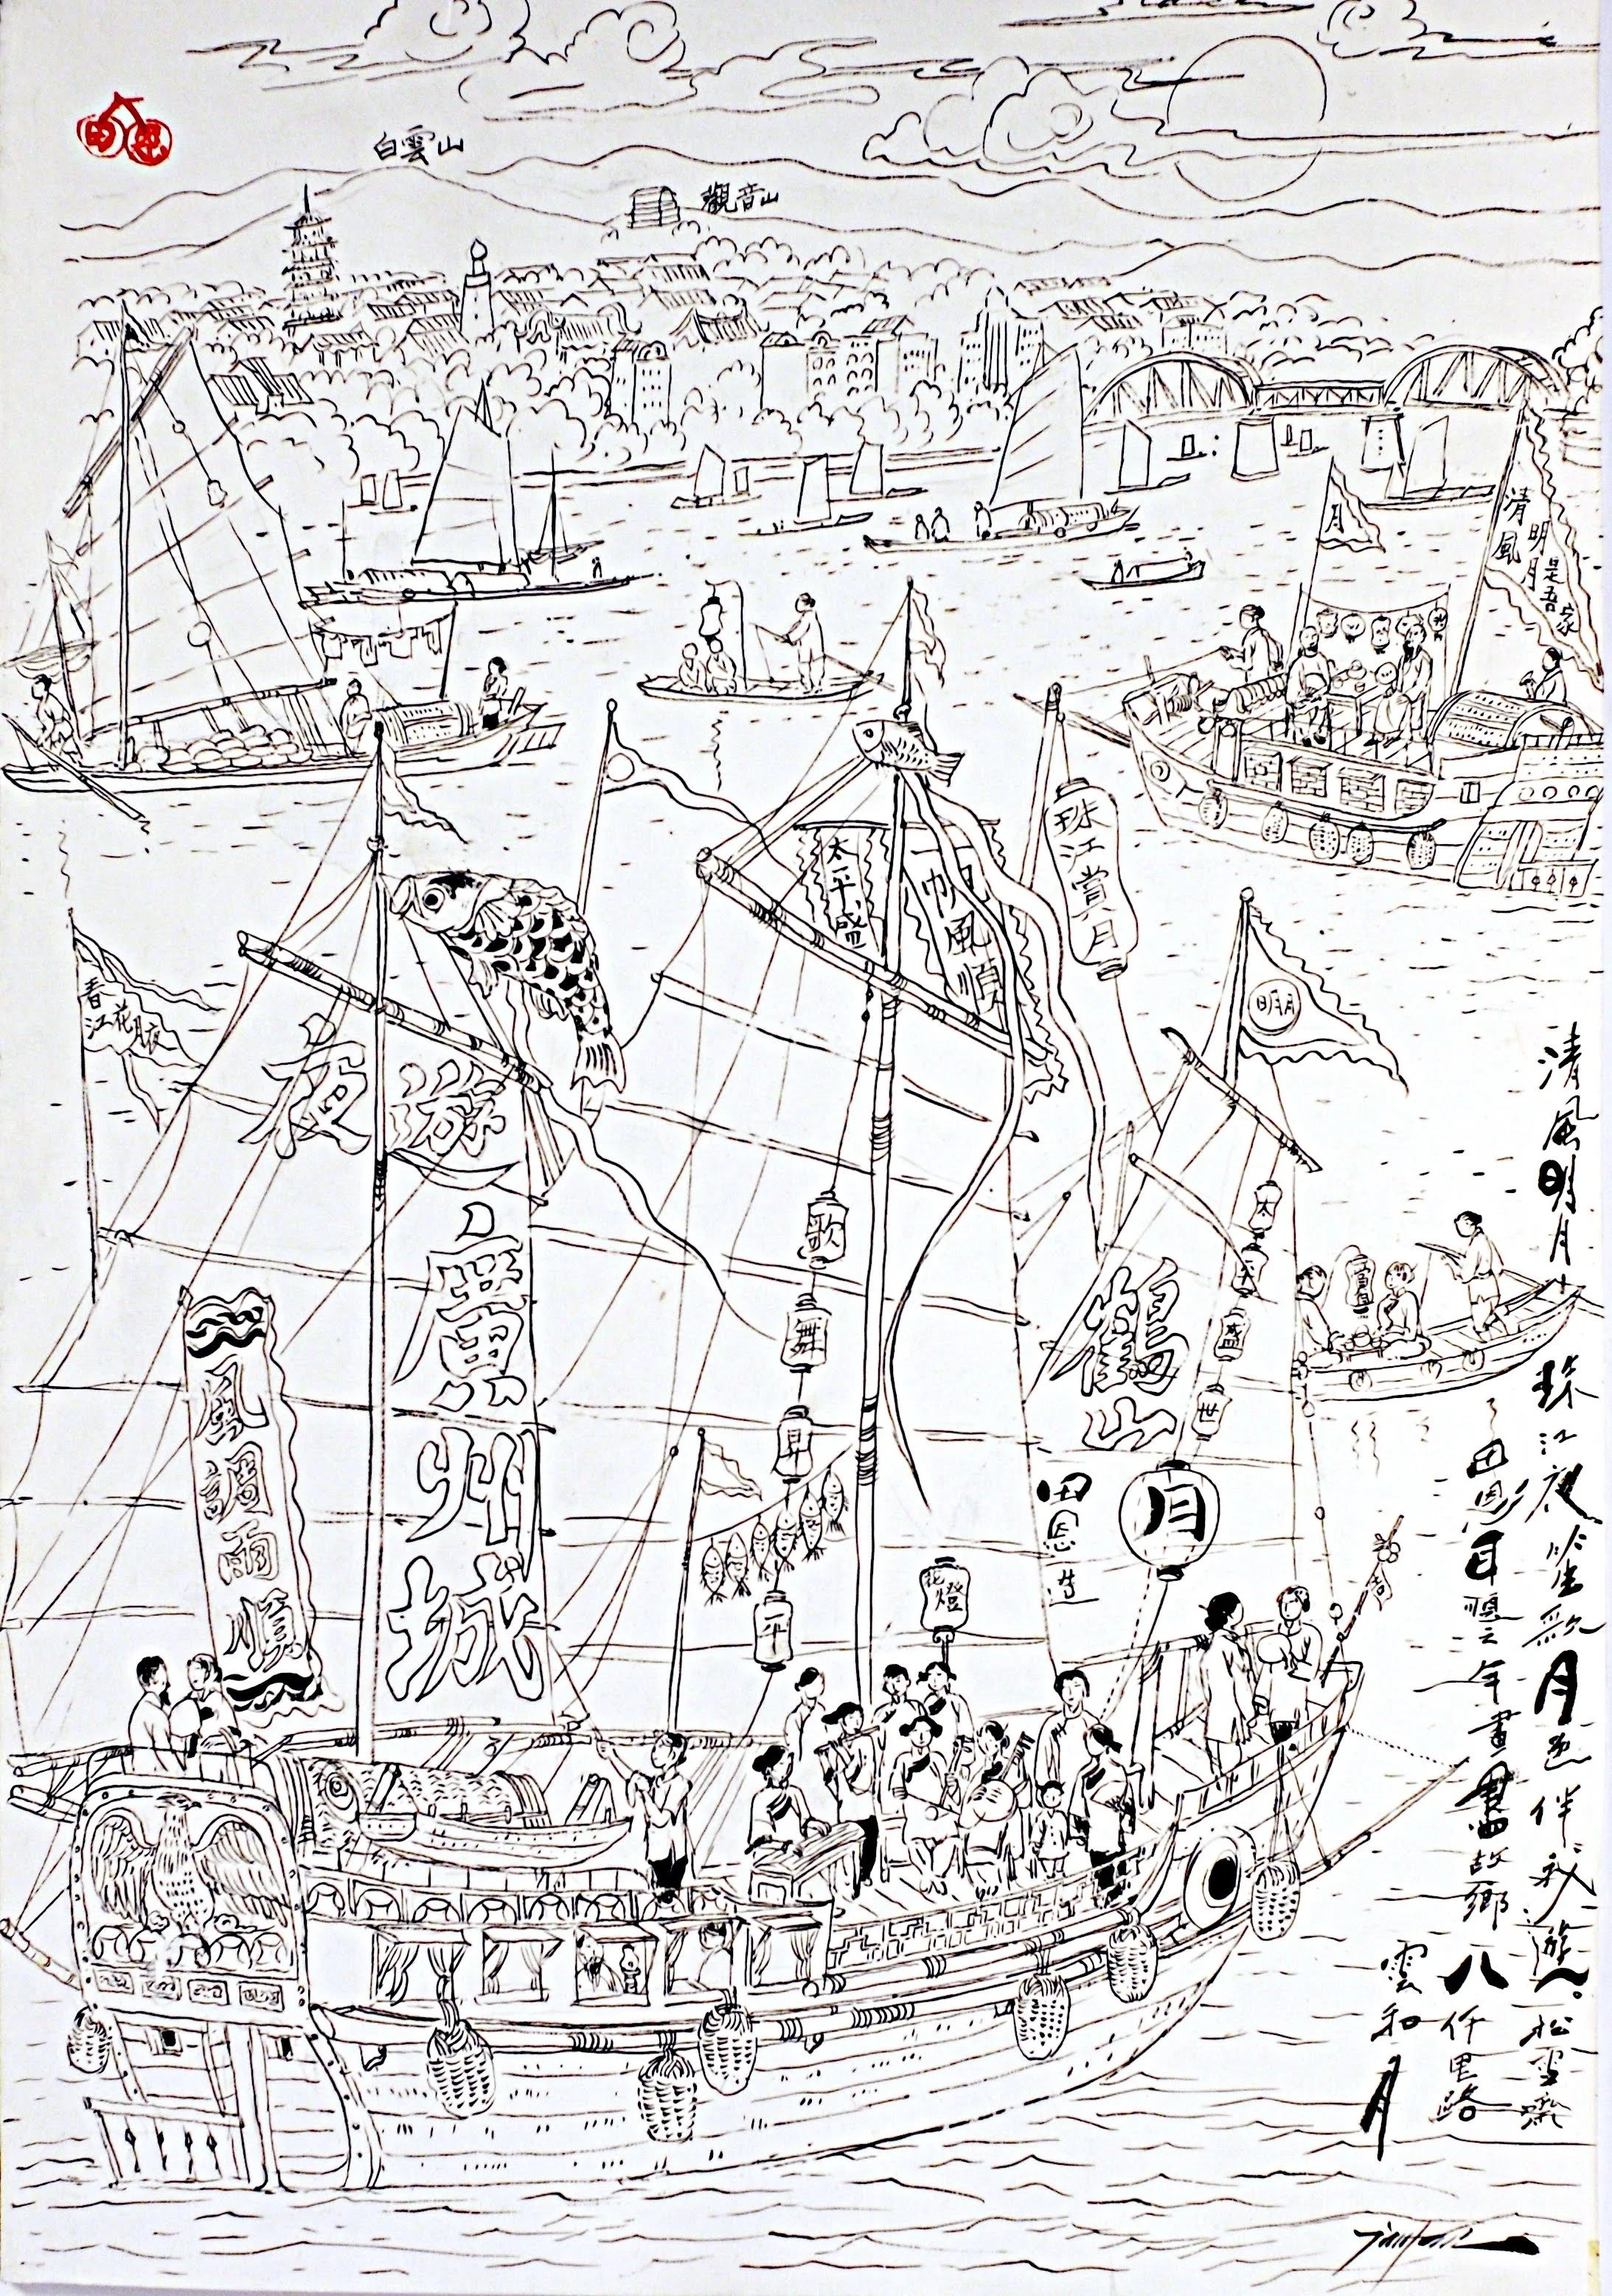 白雲山
觀音山
月
清風
明月
是吾家
珠江賞月
太平盛
一帆風順
春江花月夜
明月
夜遊
廣州城
風調雨順
歌
舞
昇
平
花燈
鶴山
田恩造
太
平
盛
世
月
清風明月
珠江夜笙歌月色伴我遊
松雪齋
田恩耳順之年畫
故鄉
八仟里路
雲和月